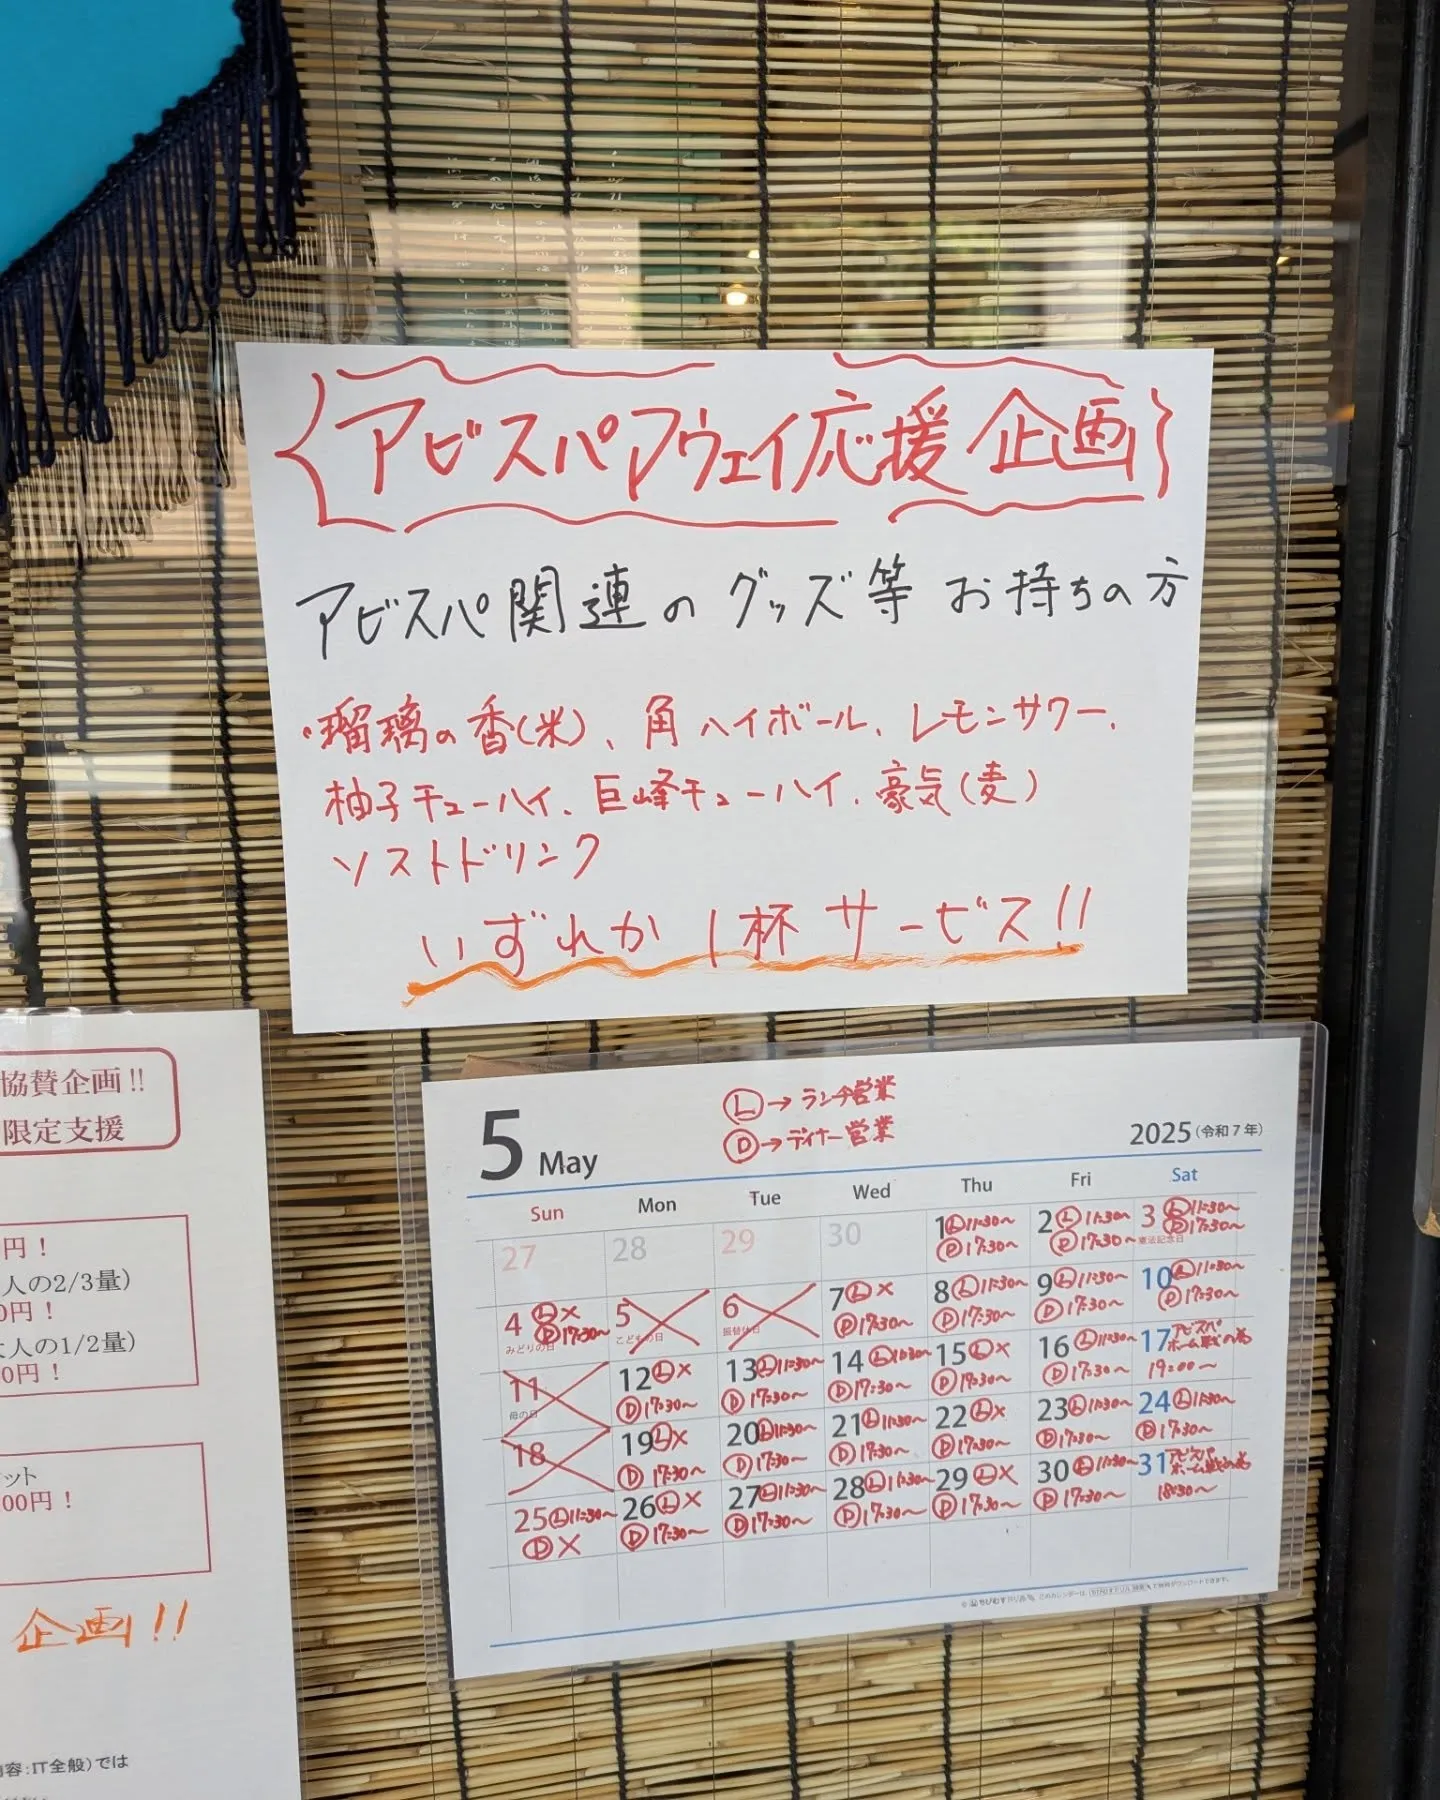 アビスパアウェイ応援企画
アビスパ関連のグッズ等お持ちの方
・瑠璃の香(米)、角ハイボール、レモンサワー、
柚子チューハイ、巨峰チューハイ、豪気(麦)
ソストドリンク
いずれか1杯サービス!!
協賛企画!!
限定支援
円!
人の2/3量)
0円!
人の1/2量)
00円!
ット
00円!
企画!!
容:IT全般)では
5 May
Ⓛ→ランチ営業
Ⓓ→ディナー営業
2025(令和7年)
Sun Mon Tue Wed Thu Fri Sat
27 28 29 30 1 Ⓛ11:30〜 2 Ⓛ11:30〜 3 Ⓛ11:30〜
Ⓓ17:30〜 Ⓓ17:30〜 Ⓓ17:30〜
憲法記念日
4 Ⓛ× 5 6 7 Ⓛ× 8 Ⓛ11:30〜 9 Ⓛ11:30〜 10 Ⓛ11:30〜
Ⓓ17:30〜 Ⓓ17:30〜 Ⓓ17:30〜 Ⓓ17:30〜 Ⓓ17:30〜
みどりの日 こどもの日 振替休日
11 12 Ⓛ× 13 Ⓛ11:30〜 14 Ⓛ11:30〜 15 Ⓛ× 16 Ⓛ11:30〜 17 アビスパ
ホーム戦の為
母の日 Ⓓ17:30〜 Ⓓ17:30〜 Ⓓ17:30〜 Ⓓ17:30〜 Ⓓ17:30〜 19:00〜
18 19 Ⓛ× 20 Ⓛ11:30〜 21 Ⓛ11:30〜 22 Ⓛ× 23 Ⓛ11:30〜 24 Ⓛ11:30〜
Ⓓ17:30〜 Ⓓ17:30〜 Ⓓ17:30〜 Ⓓ17:30〜 Ⓓ17:30〜 Ⓓ17:30〜
25 Ⓛ11:30〜 26 Ⓛ× 27 Ⓛ11:30〜 28 Ⓛ11:30〜 29 Ⓛ× 30 Ⓛ11:30〜 31 アビスパ
ホーム戦の為
Ⓓ× Ⓓ17:30〜 Ⓓ17:30〜 Ⓓ17:30〜 Ⓓ17:30〜 Ⓓ17:30〜 18:30〜